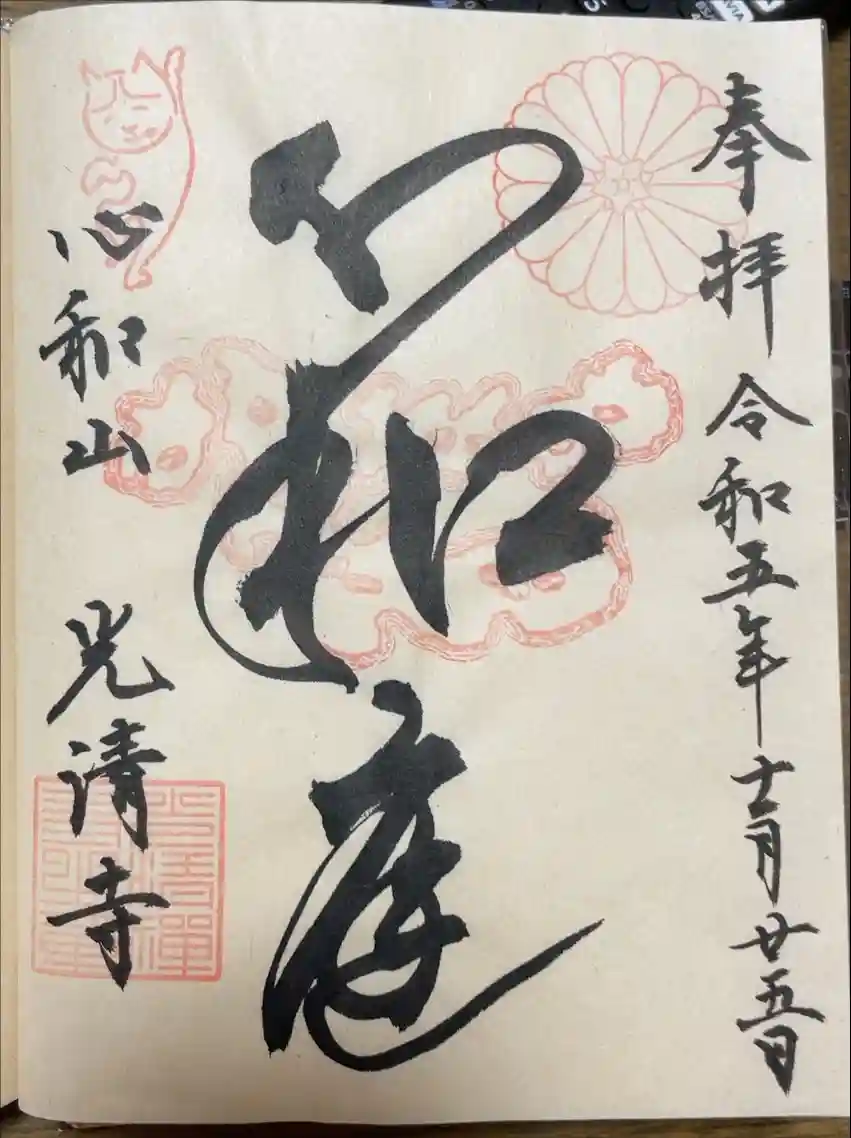 奉拝 令和五年十一月廿五日
心和庭
心和山 光清寺